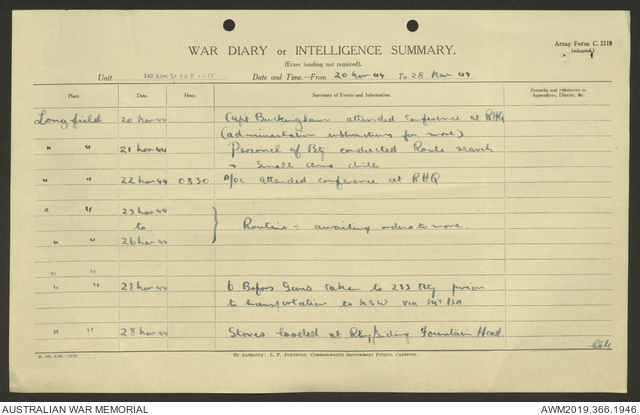 Army Form C. 2118
(adapted)
WAR DIARY or INTELLIGENCE SUMMARY.
(Erase heading not required).
Unit Date and Time—From 20 Nov 44 To 28 Nov 44
Place. Date. Hour. Summary of Events and Information. Remarks and references to Appendices, Diaries, &c.
Longfield 20 Nov 44 Capt Buckingham attended conference at RHQ
(administration instructions for move)
" " 21 Nov 44 Personel of Bty conducted Route march
+ Small arms drill
" " 22 Nov 44 0830 attended conference at RHQ
" " 23 Nov 44
to Routine - awaiting orders to move.
" " 26 Nov 44
" "
" " 27 Nov 44 6 Bofors Guns taken to 233 Bty prior
to transportation to NSW via Mt Isa
" " 28 Nov 44 Stores loaded at Rly Siding Fountain Head
By Authority: L. F. Johnston, Commonwealth Government Printer, Canberra.
AUSTRALIAN WAR MEMORIAL AWM2019.366.1946